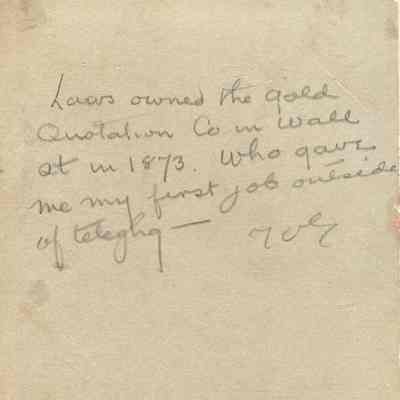 Laws owned the gold
Quotation Co in Wall
st in 1873. Who gave
me my first job outside
of teleghq —